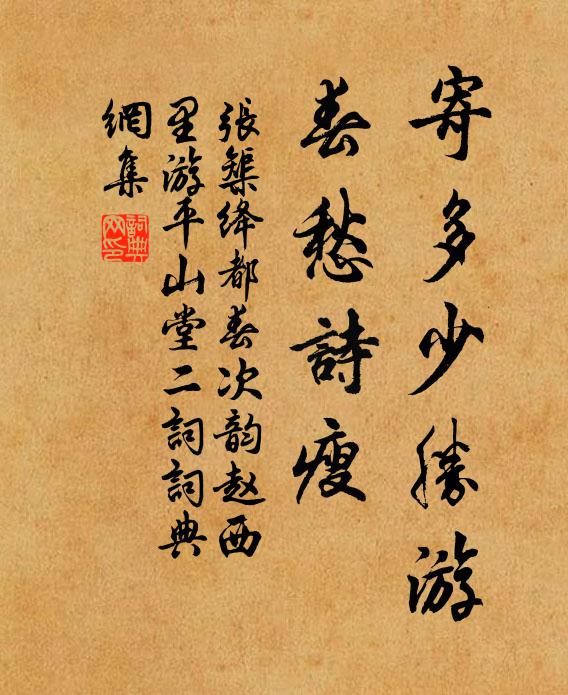 寄多少勝游
春愁詩瘦
張榘絳都春次韵赵西
里游平山堂二詞詞典
網集
詞典
网印